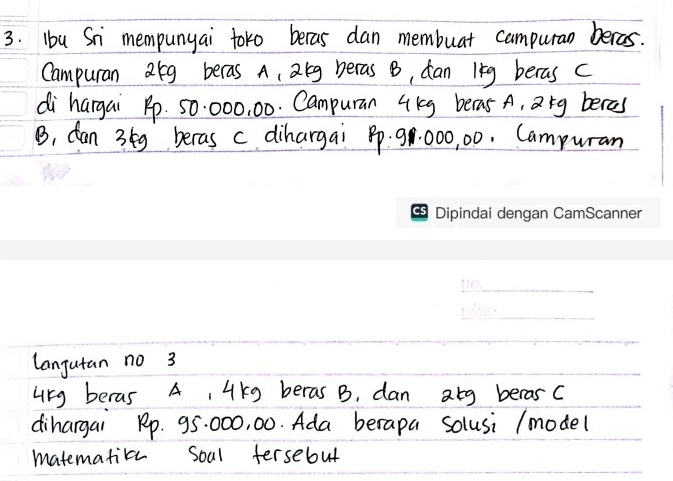 3. Ibu Sri mempunyai toko beras dan membuat campuran beras.
Campuran 2kg beras A, 2kg beras B, dan 1kg beras C
di hargai Rp. 50.000,00. Campuran 4kg beras A, 2kg beras
B, dan 3kg beras C dihargai Rp. .000,00. Campuran
CS Dipindai dengan CamScanner
NO.
DATE:
Lanjutan no 3
4kg beras A, 4kg beras B, dan 2kg beras C
dihargai Rp. 95.000,00. Ada berapa solusi /model
matematika soal tersebut